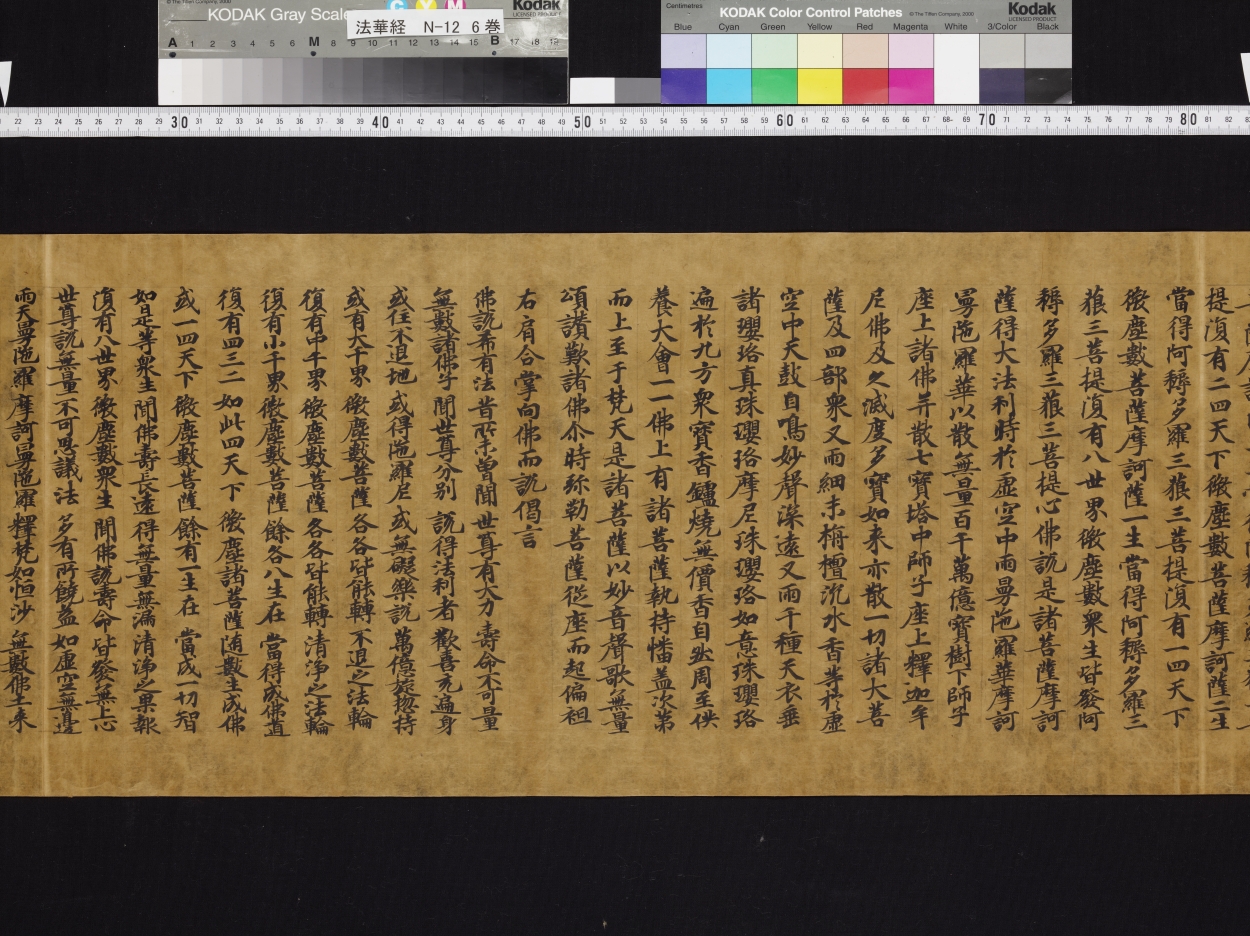 © The Tiffen Company, 2000
KODAK Gray Scale
C Y M
Kodak
LICENSED PRODUCT
法華経 N-12 6巻
A 1 2 3 4 5 6 M 8 9 10 11 12 13 14 15 B 17 18 19
Centimetres
KODAK Color Control Patches
© The Tiffen Company, 2000
Kodak
LICENSED PRODUCT
Blue Cyan Green Yellow Red Magenta White 3/Color Black
22 23 24 25 26 27 28 29 30 31 32 33 34 35 36 37 38 39 40 41 42 43 44 45 46 47 48 49 50 51 52 53 54 55 56 57 58 59 60 61 62 63 64 65 66 67 68 69 70 71 72 73 74 75 76 77 78 79 80 81 82
提復有二四天下微塵數菩薩摩訶薩二生
當得阿耨多羅三藐三菩提復有一四天下
微塵數菩薩摩訶薩一生當得阿耨多羅三
藐三菩提復有八世界微塵數衆生皆發阿
耨多羅三藐三菩提心佛說是諸菩薩摩訶
薩得大法利時於虛空中雨曼陁羅華摩訶
曼陁羅華以散無量百千萬億寶樹下師子
座上諸佛并散七寶塔中師子座上釋迦牟
尼佛及久滅度多寶如來亦散一切諸大菩
薩及四部衆又雨細末栴檀沉水香等於虛
空中天鼓自鳴妙聲深遠又雨千種天衣垂
諸瓔珞真珠瓔珞摩尼珠瓔珞如意珠瓔珞
遍於九方衆寶香鑪燒無價香自然周至供
養大會一一佛上有諸菩薩執持幡盖次第
而上至于梵天是諸菩薩以妙音聲歌無量
頌讚歎諸佛尒時弥勒菩薩從座而起偏袒
右肩合掌向佛而說偈言
佛說希有法 昔所未曾聞 世尊有大力 壽命不可量
無數諸佛子 聞世尊分別 說得法利者 歡喜充遍身
或住不退地 或得陁羅尼 或無礙樂說 萬億旋揔持
或有大千界 微塵數菩薩 各各皆能轉 不退之法輪
復有中千界 微塵數菩薩 各各皆能轉 清淨之法輪
復有小千界 微塵數菩薩 餘各八生在 當得成佛道
復有四三二 如此四天下 微塵諸菩薩 随數生成佛
或一四天下 微塵數菩薩 餘有一生在 當成一切智
如是等衆生 聞佛壽長遠 得無量無漏 清淨之果報
復有八世界 微塵數衆生 聞佛說壽命 皆發無上心
世尊說無量 不可思議法 多有所饒益 如虛空無邊
雨天曼陁羅 摩訶曼陁羅 釋梵如恒沙 無數佛土來